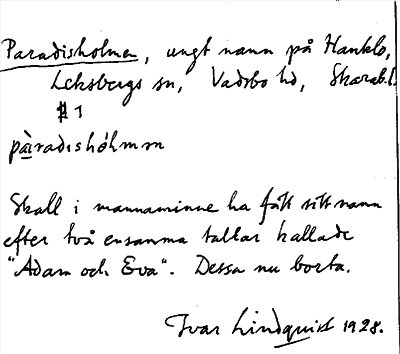 Paradisholmen, ungt namn på Hanklo,
Leksbergs sn, Vadsbo hd, Skarab. l.
1
pàradɪshòlmɪn
Skall i mannaminne ha fått sitt namn
efter två ensamma tallar kallade
"Adam och Eva". Dessa nu borta.
Ivar Lindquist 1928.